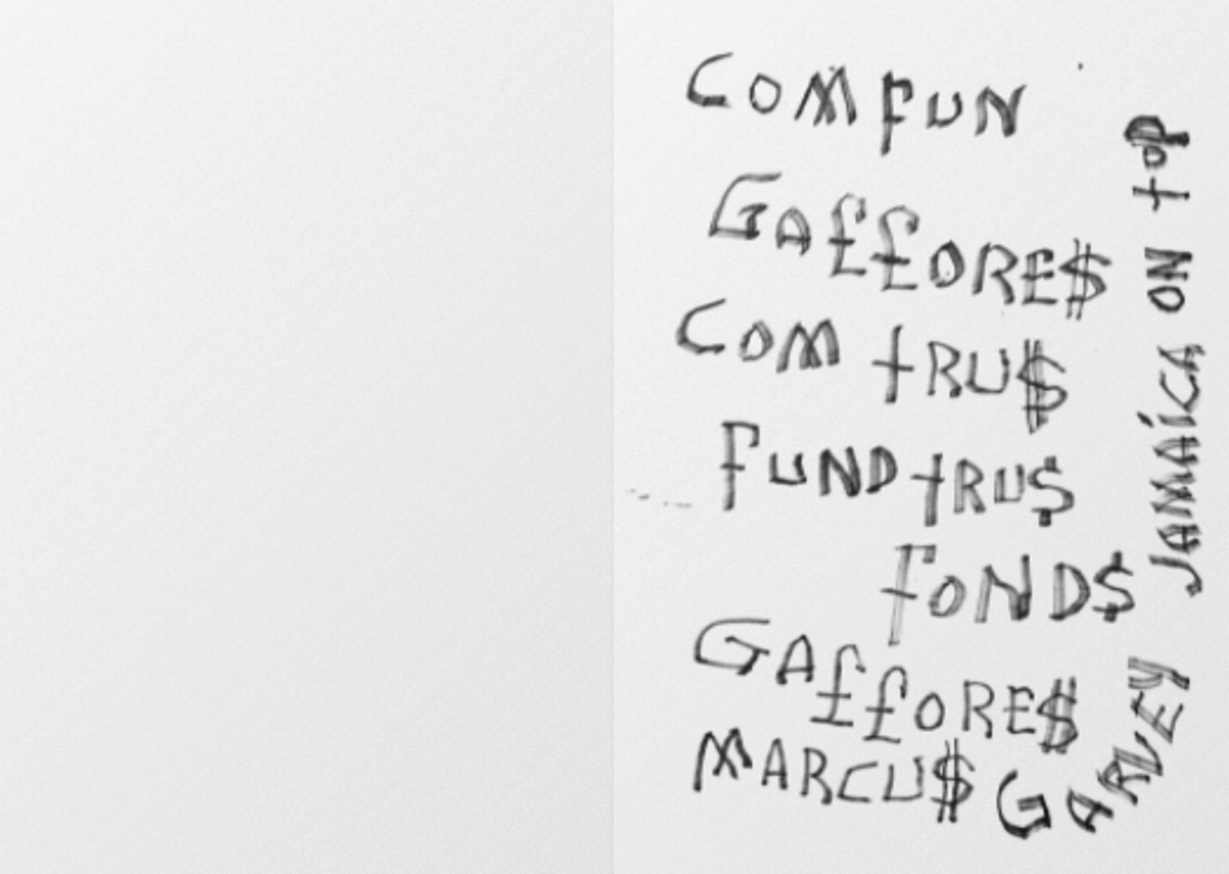 COMFUN
GA££ORE$
COM tRU$
FUND tRU$
FOND$
GA££ORE$
MARCU$ GARVEY
JAMAiCA ON tOP